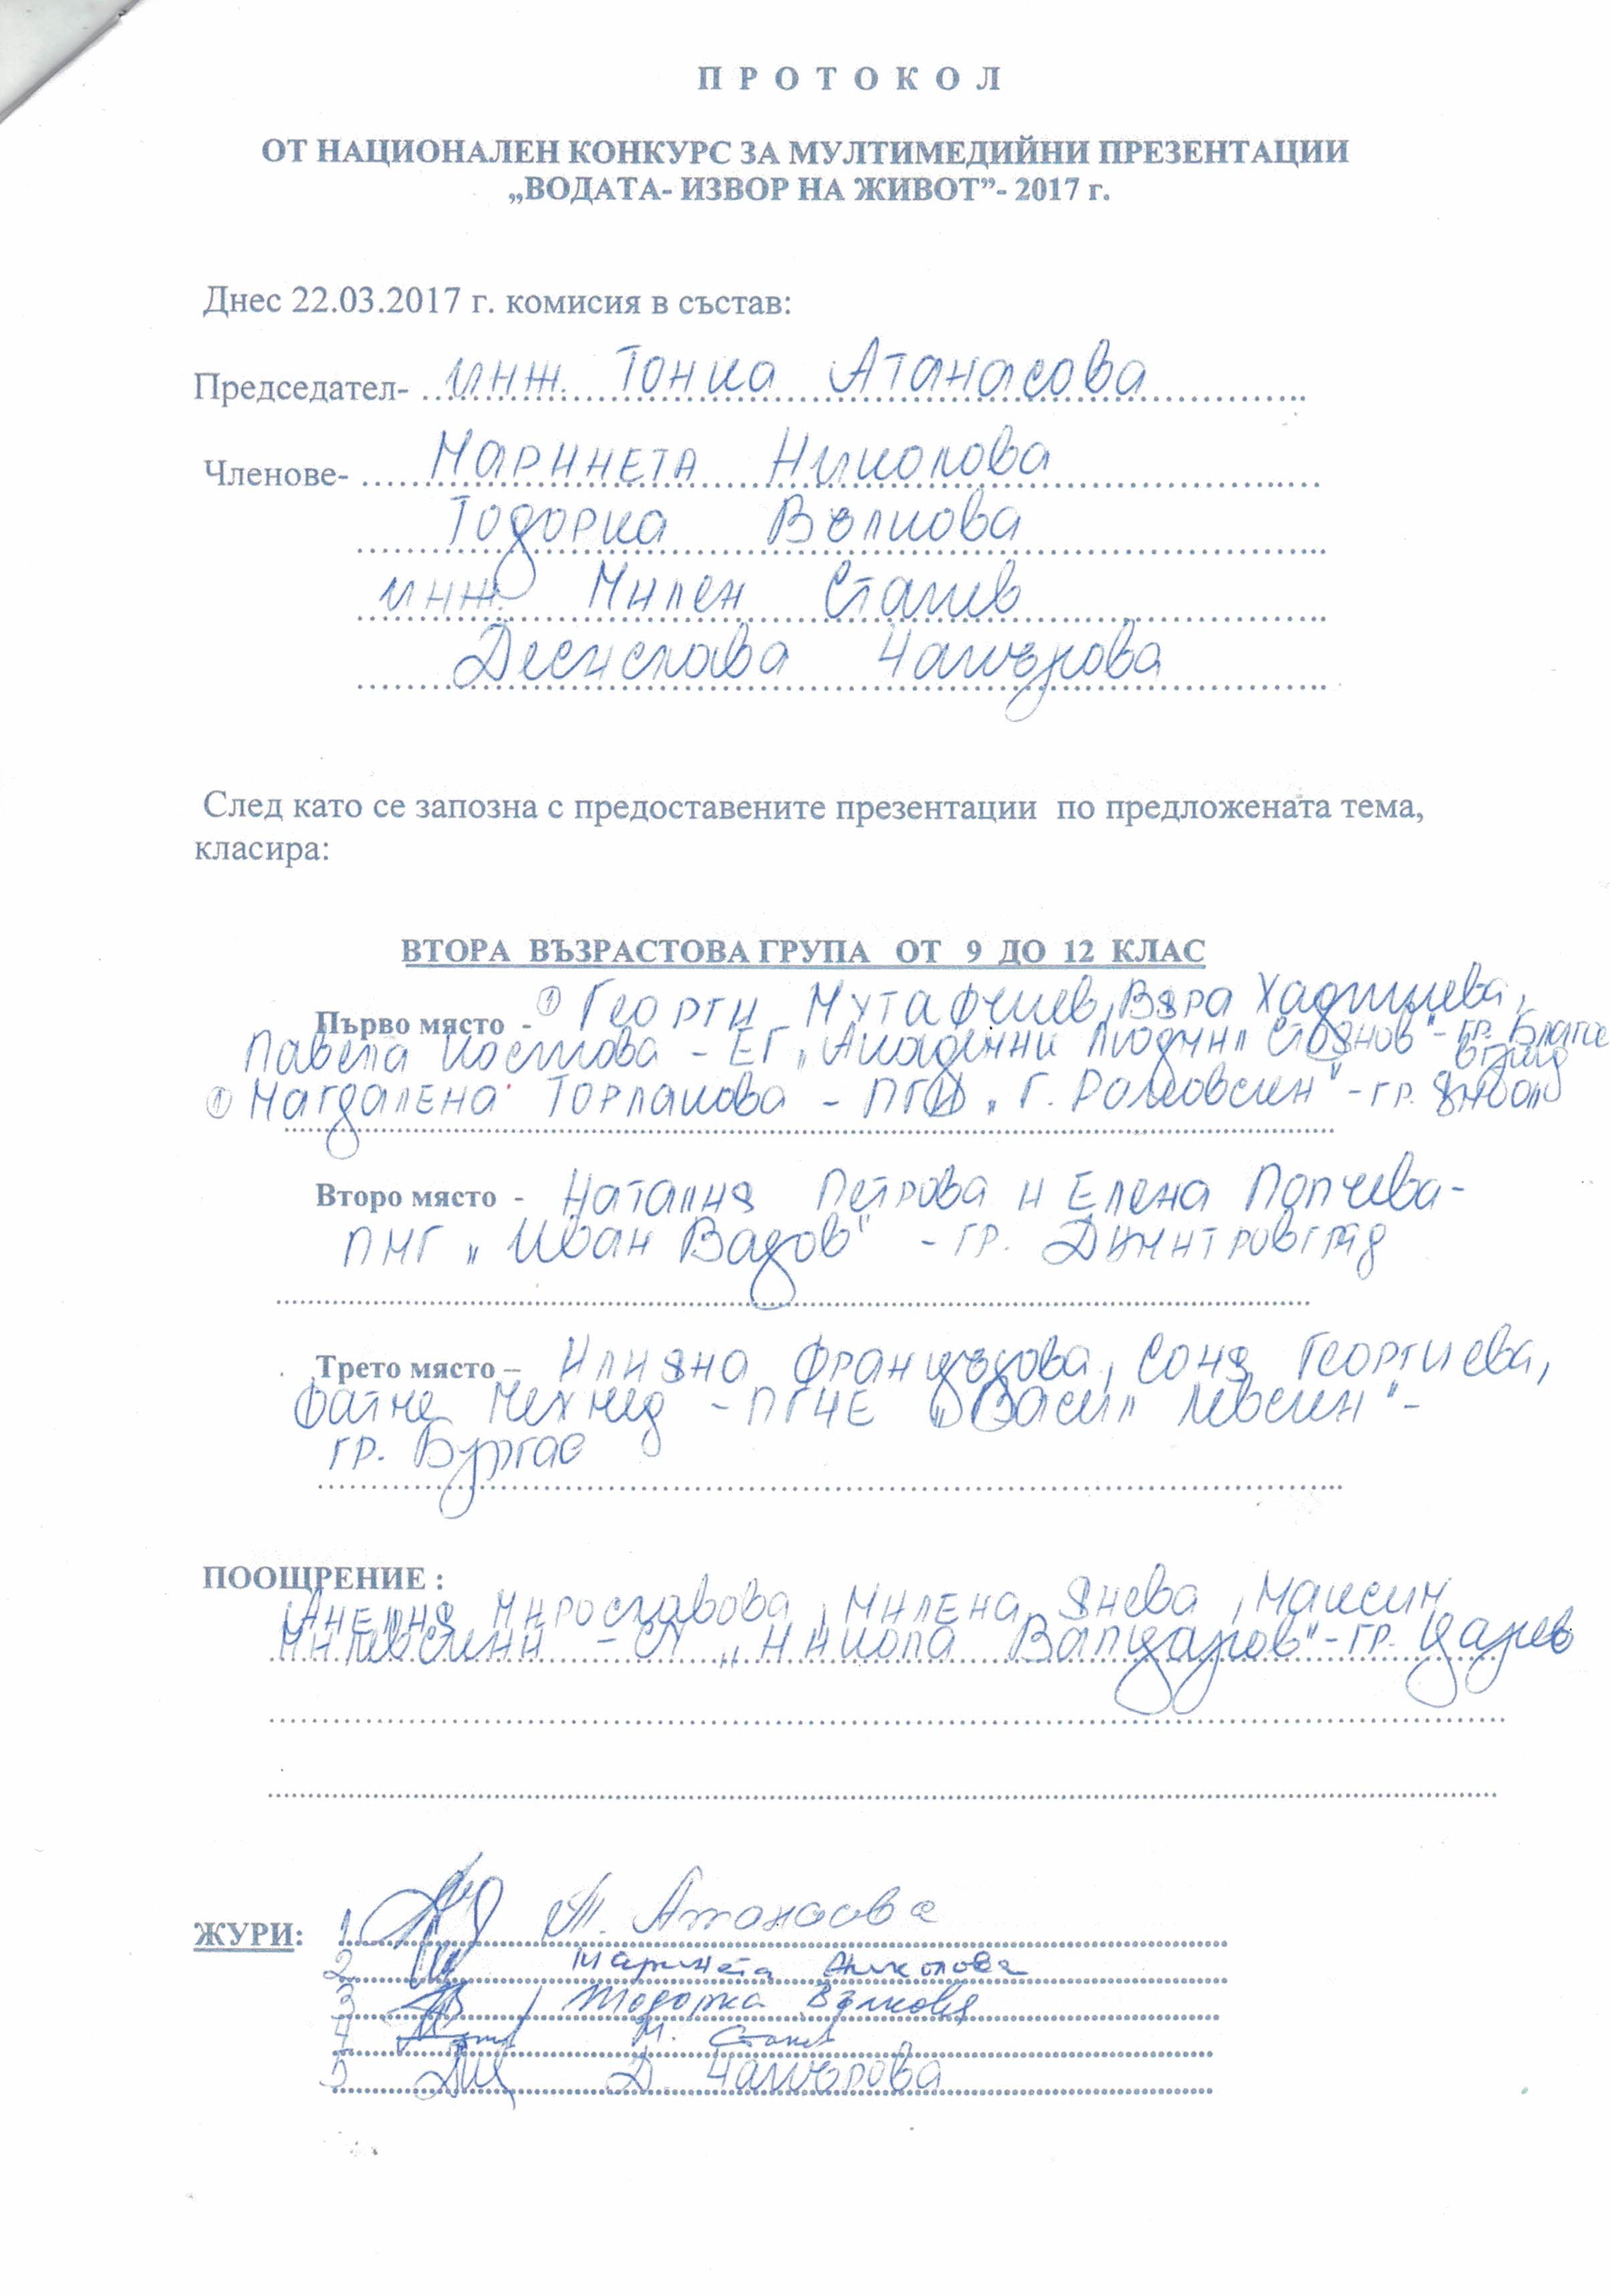 П Р О Т О К О Л
ОТ НАЦИОНАЛЕН КОНКУРС ЗА МУЛТИМЕДИЙНИ ПРЕЗЕНТАЦИИ
„ВОДАТА- ИЗВОР НА ЖИВОТ”- 2017 г.
Днес 22.03.2017 г. комисия в състав:
Председател- инж. Тонка Атанасова
Членове- Маринета Николова
Тодорка Вълкова
инж. Милен Станев
Десислава Чакърова
След като се запозна с предоставените презентации по предложената тема,
класира:
ВТОРА ВЪЗРАСТОВА ГРУПА ОТ 9 ДО 12 КЛАС
Първо място - ① Георги Мутафчиев, Вяра Хаджиева,
Павела Костова - ЕГ „Академик Людмил Стоянов" - гр. Благоевград
① Магдалена Торлакова - ПГИ „Г. Раковски" - гр. Ямбол
Второ място - Наталия Петрова и Елена Попчева-
ПМГ „Иван Вазов" - гр. Димитровград
Трето място – Илияна Французова, Соня Георгиева,
Фатме Мехмед - ПГЧЕ „Васил Левски" -
гр. Бургас
ПООЩРЕНИЕ :
Анелия Мирославова, Милена Янева, Максим
- СУ „Никола Вапцаров" - гр. Царево
ЖУРИ: 1 Т. Атанасова
2 Маринета Николова
3 Тодорка Вълкова
4 М. Станев
5 Д. Чакърова